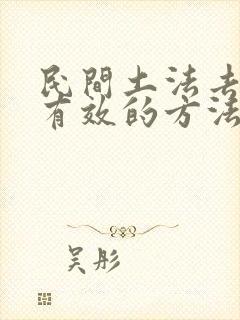 民間土法去
有效的方法
吴彤